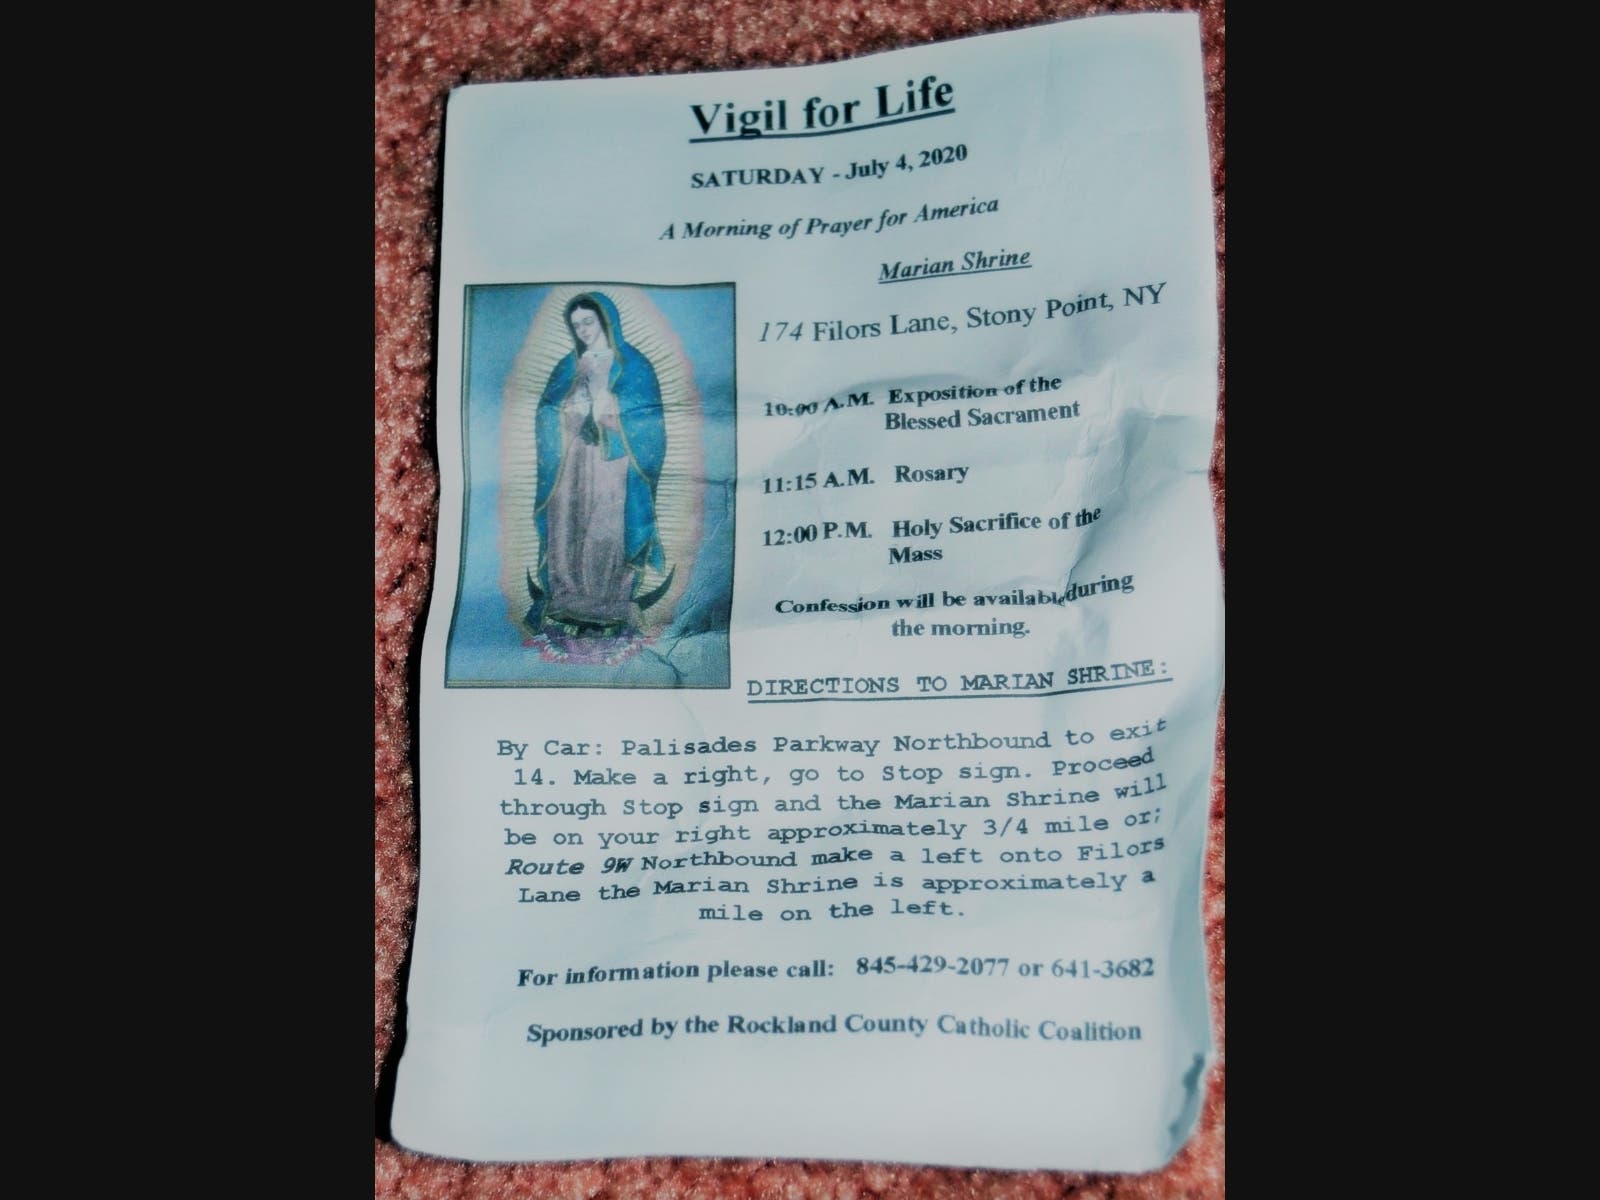 Vigil for Life
SATURDAY - July 4, 2020
A Morning of Prayer for America
Marian Shrine
174 Filors Lane, Stony Point, NY
10:00 A.M. Exposition of the
Blessed Sacrament
11:15 A.M. Rosary
12:00 P.M. Holy Sacrifice of the
Mass
Confession will be available during
the morning.
DIRECTIONS TO MARIAN SHRINE:
By Car: Palisades Parkway Northbound to exit
14. Make a right, go to Stop sign. Proceed
through Stop sign and the Marian Shrine will
be on your right approximately 3/4 mile or;
Route 9W Northbound make a left onto Filors
Lane the Marian Shrine is approximately a
mile on the left.
For information please call: 845-429-2077 or 641-3682
Sponsored by the Rockland County Catholic Coalition